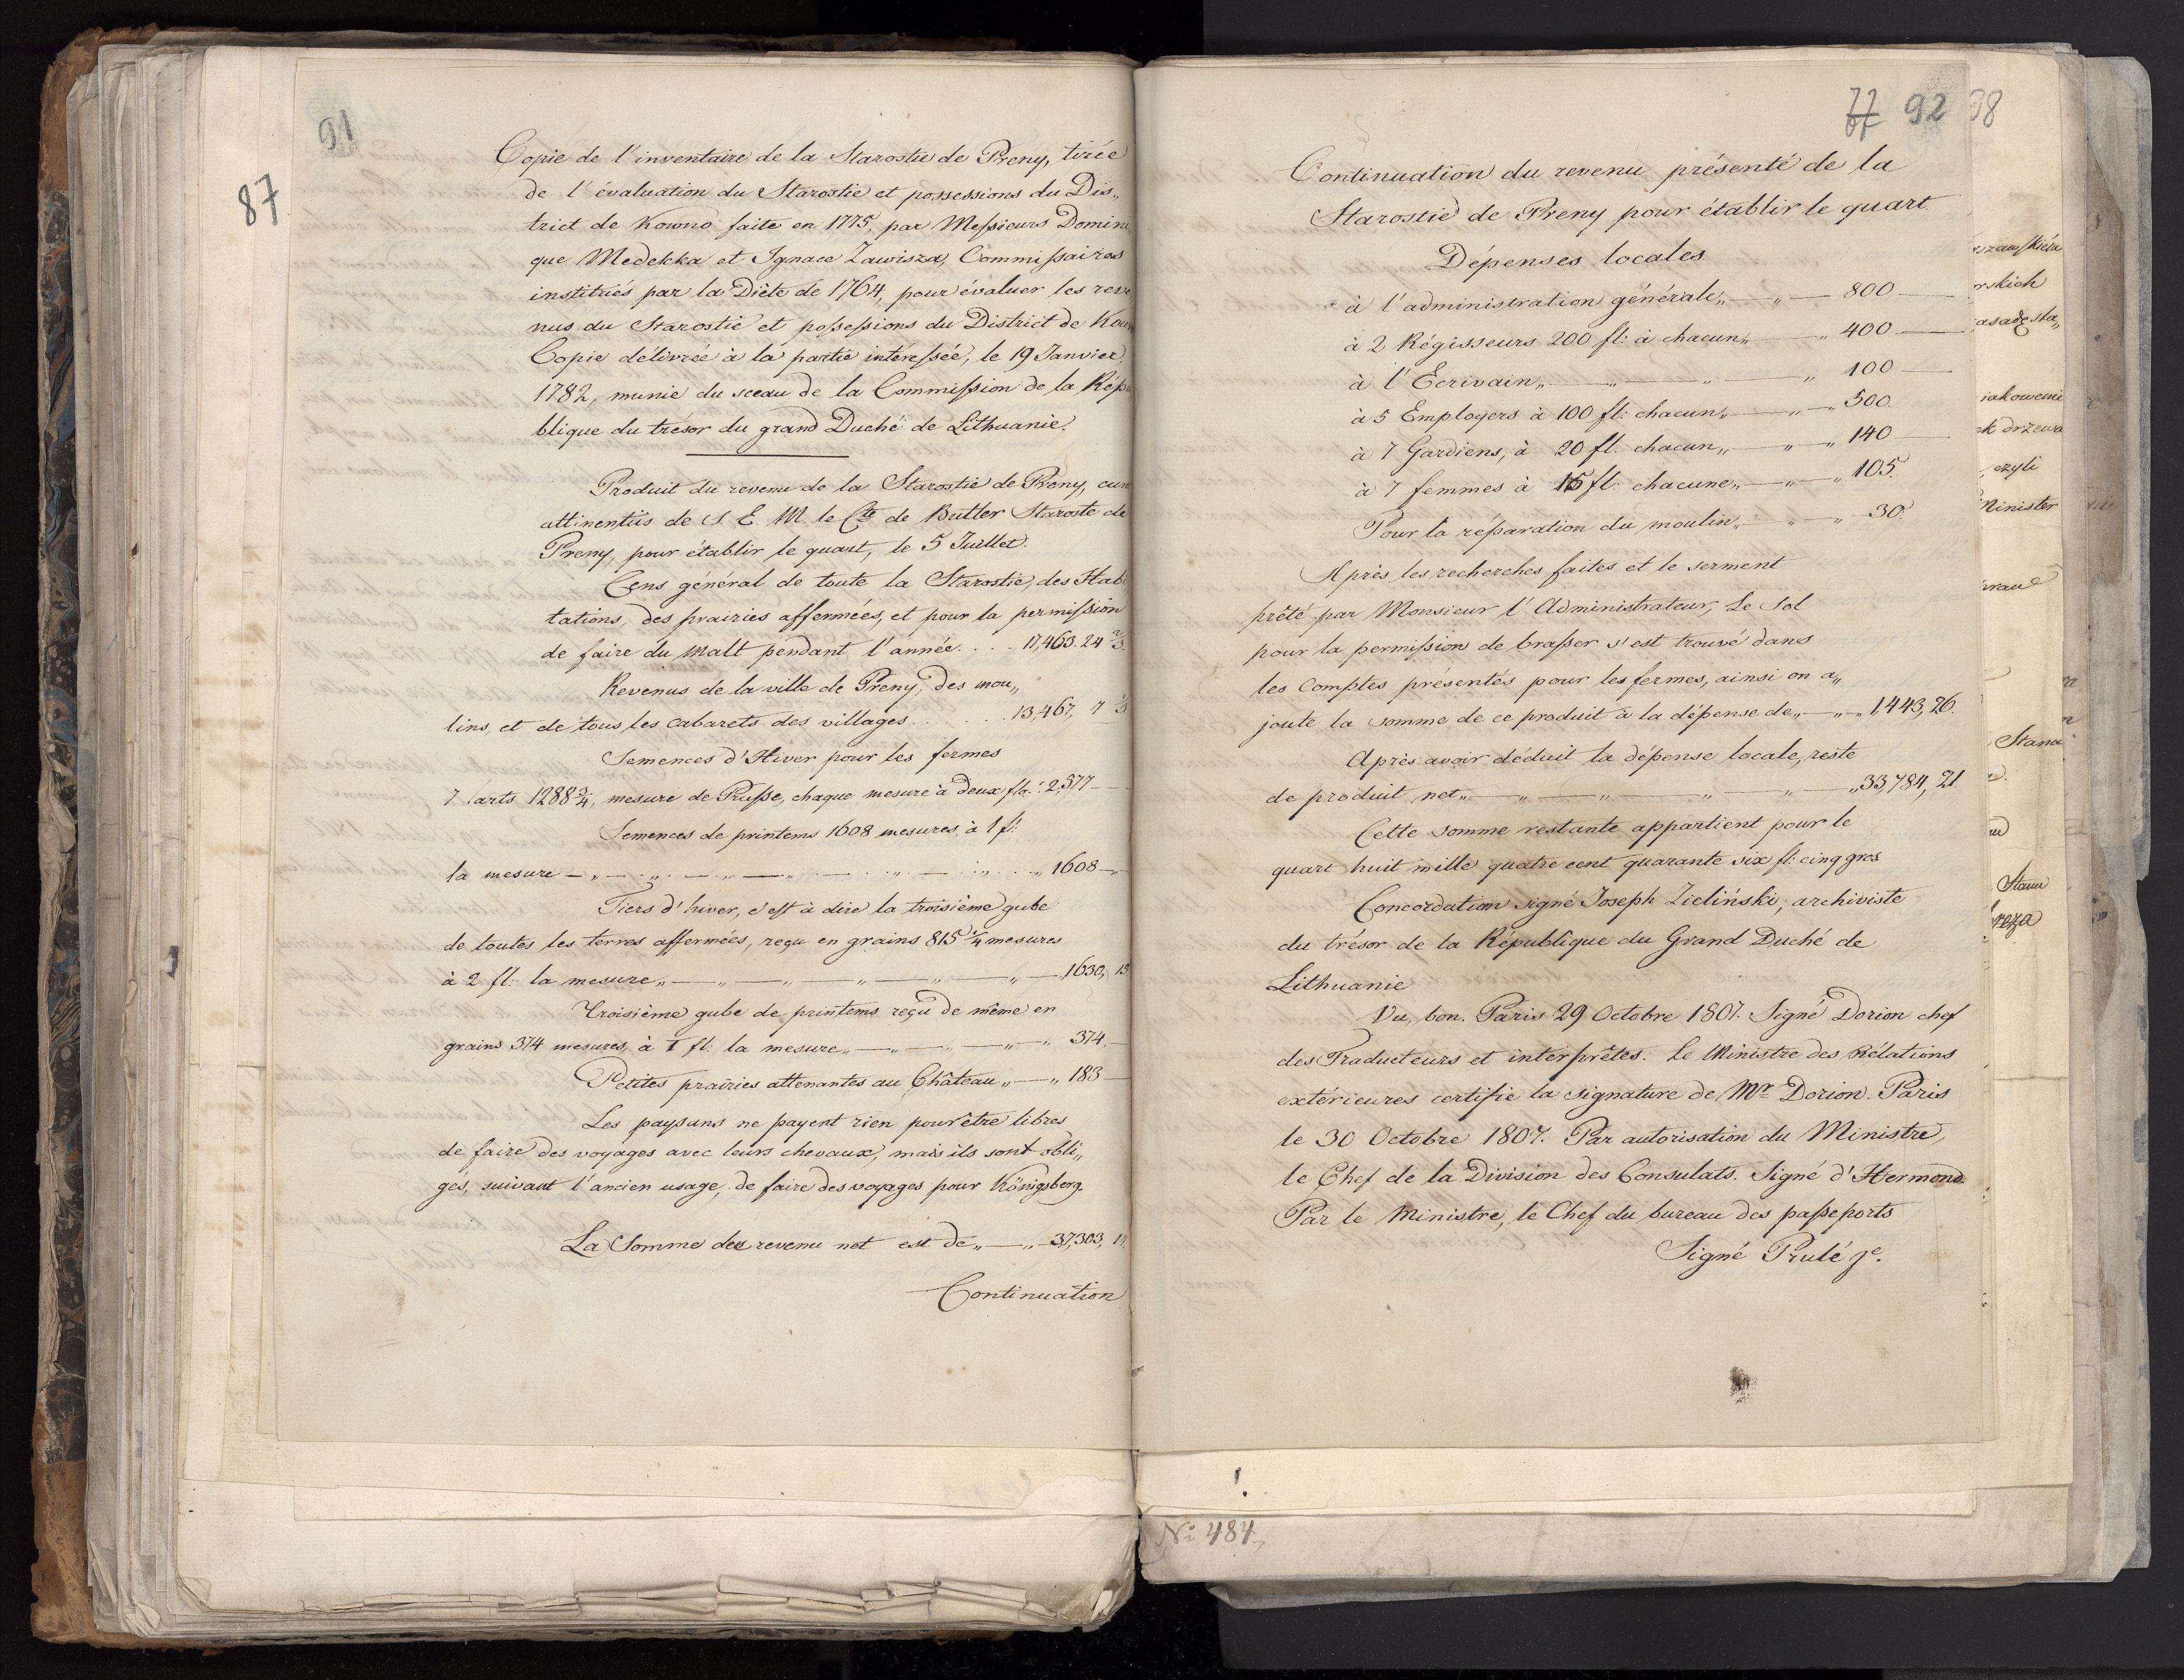 91
87
Copie de l'inventaire de la Starostie de Preny, tirée
de l'évaluation du Starostie et possessions du Dis„
trict de Kowno faite en 1775, par Messieurs Domini
que Medekka et Ignace Zawisza, Commissaires
institués par la Diète de 1764, pour évaluer les reve
nus du Starostie et possessions du District de Kow
Copie délivrée à la partie intéressée, le 19 Janvier,
1782, munie du sceau de la Commission de la Répu
blique du trésor du grand Duché de Lithuanie.
Produit du revenu de la Starostie de Preny, cum
attinentiis de S. E. M. le Cte de Butler Staroste de
Preny, pour établir le quart, le 5 Juillet.
Cens général de toute la Starostie, des Habi
tations, des prairies affermées, et pour la permission
de faire du Malt pendant l'année. . . . 17,463. 24 2/3.
Revenus de la ville de Preny, des mou„
lins, et de tous les cabarets des villages . . . . . 13,467, 7 1/3
Semences d'Hiver pour les fermes
7 1288 3/4, mesure de Prusse, chaque mesure à deux fls: 2,577 —
Semences de printems 1608 mesures, à 1 fl:
la mesure — „ — „ — „ — „ — „ 1608 — „
Tiers d'hiver, c'est à dire la troisième gube
de toutes les terres affermées, reçu en grains 815 1/4 mesures
à 2 fl: la mesure „ — „ — „ — „ — „ — 1630, 15
Troisième gube de printems reçu de même en
grains 374 mesures, à 1 fl: la mesure „ — „ — „ — „ 374. —
Petites prairies attenantes au Château „ — „ 183 —
Les paysans ne payent rien pour être libres
de faire des voyages avec leurs chevaux, mais ils sont obli„
gés, suivant l'ancien usage, de faire des voyages pour Königsberg.
La Somme des revenu net est de „ — „ 37,303, 17.
Continuation
77 92 98
Continuation du revenu présenté de la
Starostie de Preny pour établir le quart
Dépenses locales
à l'administration générale, — „ — 800 —
à 2 Régisseurs 200 fl: à chacun „ — „ 400 —
à l'Ecrivain „ — „ — „ — „ 100 —
à 5 Employers à 100 fl: chacun „ — „ — 500.
à 7 Gardiens, à 20 fl. chacun „ — „ — „ 140 —
à 7 femmes à 15 fl: chacune „ — „ — „ 105.
Pour la réparation du moulin „ — „ — „ 30.
Après les recherches faites et le serment
prêté par Monsieur l'Administrateur, Le Sol
pour la permission de brasser s'est trouvé dans
les Comptes présentés pour les fermes, ainsi on a„
joute la somme de ce produit à la dépense de „ — „ — „ 1,443, 26.
Après avoir déduit la dépense locale, reste
de produit net „ — „ — „ — „ — „ — „ 33,784, 21.
Cette somme restante appartient pour le
quart huit mille quatre cent quarante six fl: cinq gros
Concordation signé Joseph Zieliński, archiviste
du trésor de la République du Grand Duché de
Lithuanie
Vu, bon. Paris 29 Octobre 1807. Signé Dorion chef
des Traducteurs et interprètes. Le Ministre des Rélations
extérieures certifie la signature de Mr Dorion. Paris
le 30 Octobre 1807. Par autorisation du Ministre,
le Chef de la Division des Consulats. Signé d'Hermond.
Par le Ministre, le Chef du bureau des passeports
Signé Prulé je.
No 484
rskich
iakowemi
ek drzewa
czyli
Minister
Stam